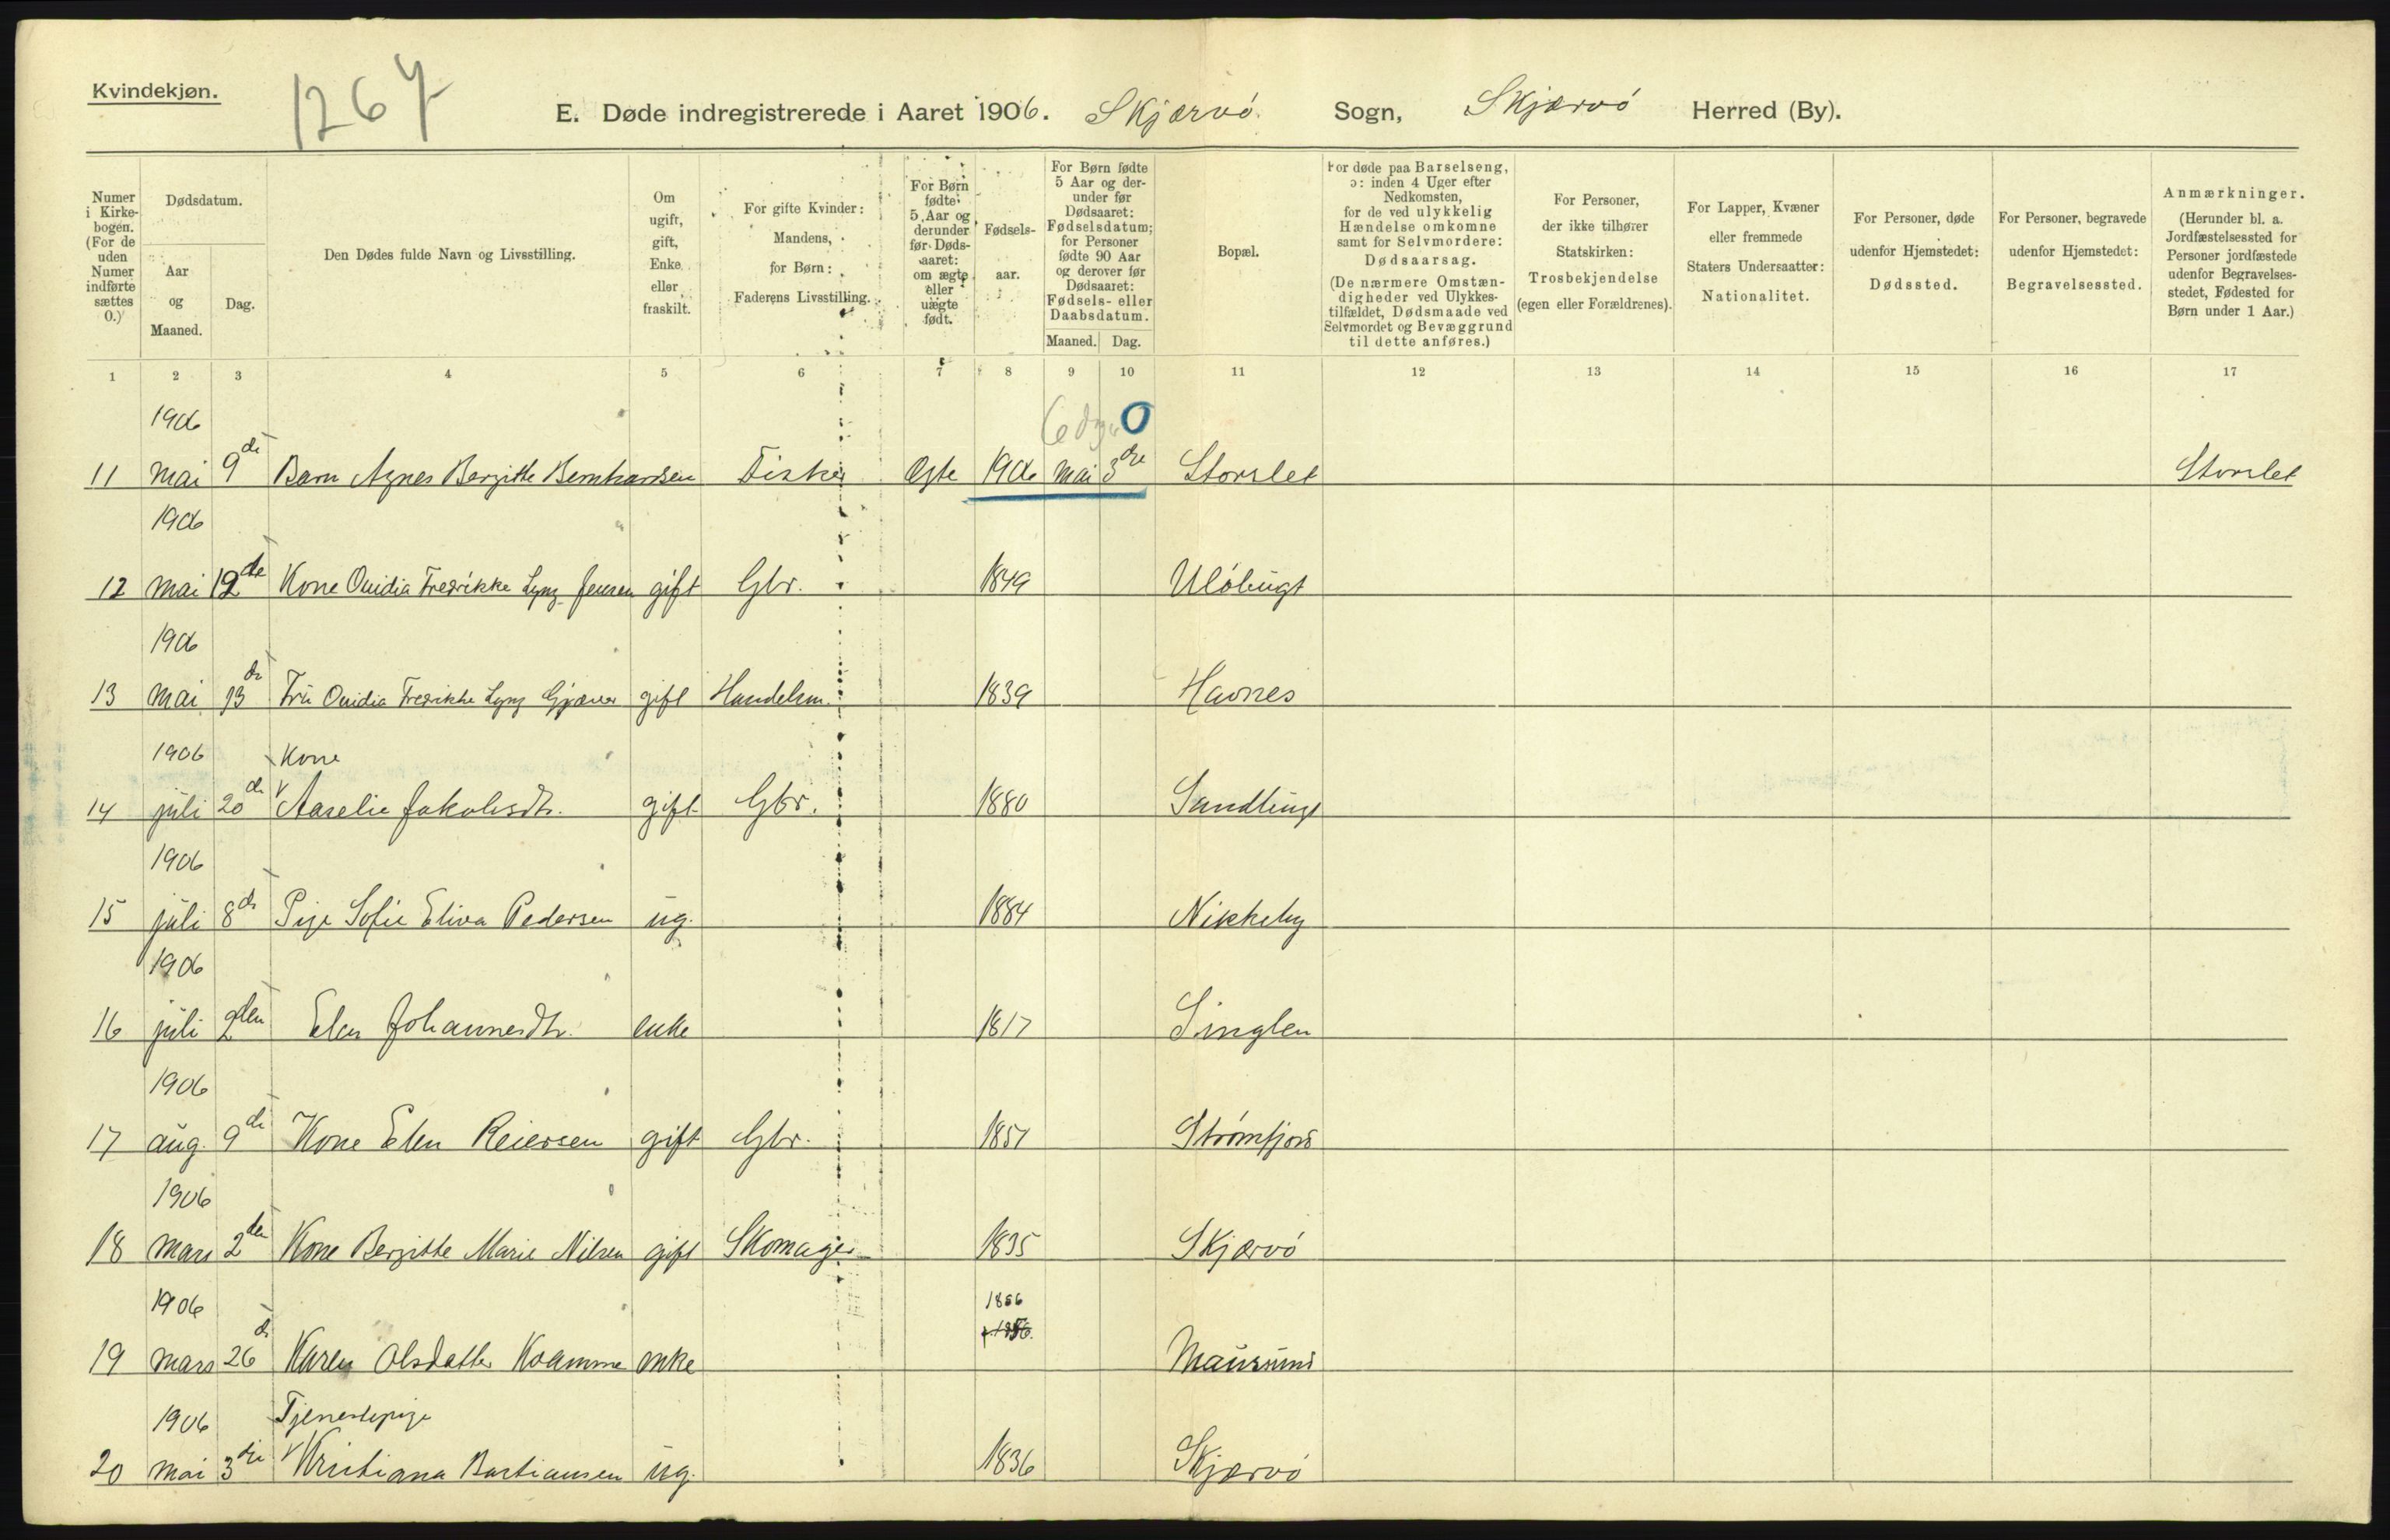 Kvindekjøn.
1267
E. Døde indregistrerede i Aaret 1906. Skjærvö Sogn, Skjærvö Herred (By).
Numer i Kirkebogen. (For de uden Numer indførte sættes 0.)
Dødsdatum.
Aar og Maaned.
Dag.
Den Dødes fulde Navn og Livsstilling.
Om ugift, gift, Enke eller fraskilt.
For gifte Kvinder: Mandens, for Børn: Faderens Livsstilling.
For Børn fødte 5 Aar og derunder før Døds-aaret: om ægte eller uægte født.
Fødsels-aar.
For Børn fødte 5 Aar og derunder før Dødsaaret: Fødselsdatum; for Personer fødte 90 Aar og derover før Dødsaaret: Fødsels- eller Daabsdatum.
Maaned. Dag.
Bopæl.
For døde paa Barselseng, ɔ: inden 4 Uger efter Nedkomsten, for de ved ulykkelig Hændelse omkomne samt for Selvmordere: Dødsaarsag. (De nærmere Omstændigheder ved Ulykkestilfældet, Dødsmaade ved Selvmordet og Bevæggrund til dette anføres.)
For Personer, der ikke tilhører Statskirken: Trosbekjendelse (egen eller Forældrenes).
For Lapper, Kvæner eller fremmede Staters Undersaatter: Nationalitet.
For Personer, døde udenfor Hjemstedet: Dødssted.
For Personer, begravede udenfor Hjemstedet: Begravelsessted.
Anmærkninger. (Herunder bl. a. Jordfæstelsessted for Personer jordfæstede udenfor Begravelsesstedet, Fødested for Børn under 1 Aar.)
1 2 3 4 5 6 7 8 9 10 11 12 13 14 15 16 17
1906 0
11 mai 9de Barn Agnes Bergitte Bernhardsen Fisker Egte 1906 mai 3die Storslet Storslet
1906
12 mai 12de Kone Ovidia Fredrikke Lyng Jensen gift Gbr. 1849 Ulöbugt
1906
13 mai 13de Fru Ovidia Fredrikke Lyng Gjæver gift Handelsm. 1839 Havnes
1906 Kone
14 juli 20de Aarelie Jakobsdtr. gift Gbr. 1880 Sandbugt
1906
15 juli 8de Pige Sofie Eliva Pedersen ug. 1884 Nikkeby
1906
16 juli 2den Elen Johannesdtr. enke 1817 Singlen
1906
17 aug. 9de Kone Elen Reiersen gift Gbr. 1851 Strömfjord
1906
18 mars 2den Kone Bergitte Marie Nilsen gift Skomager 1835 Skjærvö
1906 1856
19 mars 26de Karen Olsdatter Kvamme enke Maursund
1906 Tjenestepige
20 mai 3die Kristiana Bastiansen ug. 1836 Skjærvö